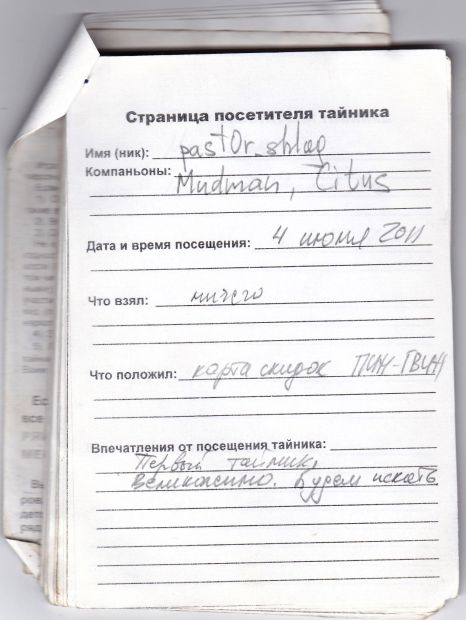 Страница посетителя тайника
Имя (ник): pastOr_shlag
Компаньоны: Mudman, Titus
Дата и время посещения: 4 июня 2011
Что взял: ничего
Что положил: карта скидок
Впечатления от посещения тайника:
Первый тайник,
Великолепно. Будем искать